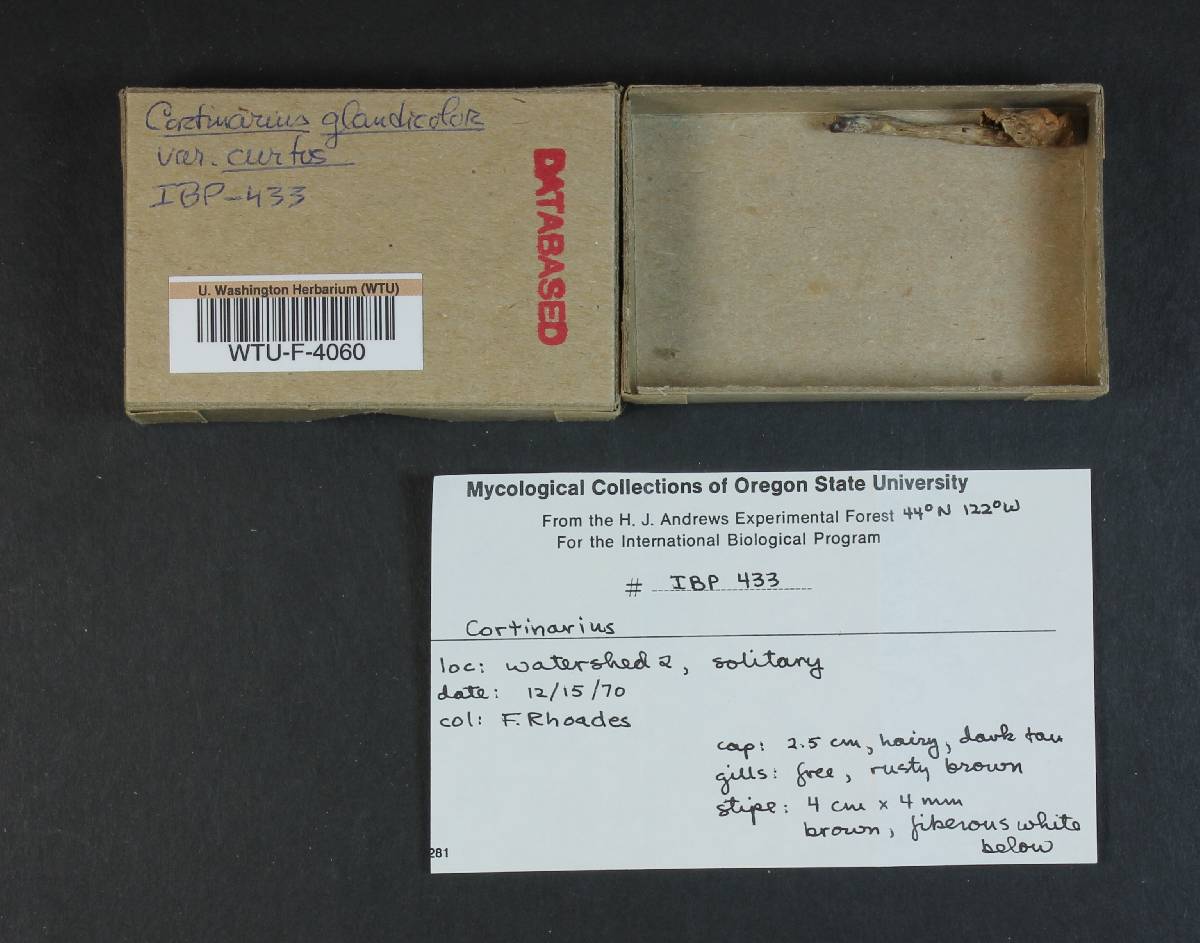 Cortinarius glandicolor
var. curtus
IBP-433
DATABASED
U. Washington Herbarium (WTU)
WTU-F-4060
Mycological Collections of Oregon State University
From the H. J. Andrews Experimental Forest 44°N 122°W
For the International Biological Program
# IBP 433
Cortinarius
loc: watershed 2, solitary
date: 12/15/70
col: F. Rhoades
cap: 2.5 cm, hairy, dark tan
gills: free, rusty brown
stipe: 4 cm x 4 mm
brown, fiberous white
below
281